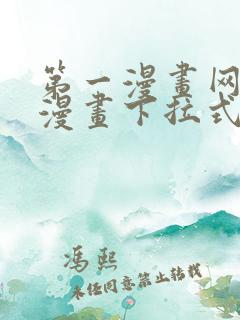 第一漫畫网
漫畫下拉式
冯熙
未经同意禁止转载